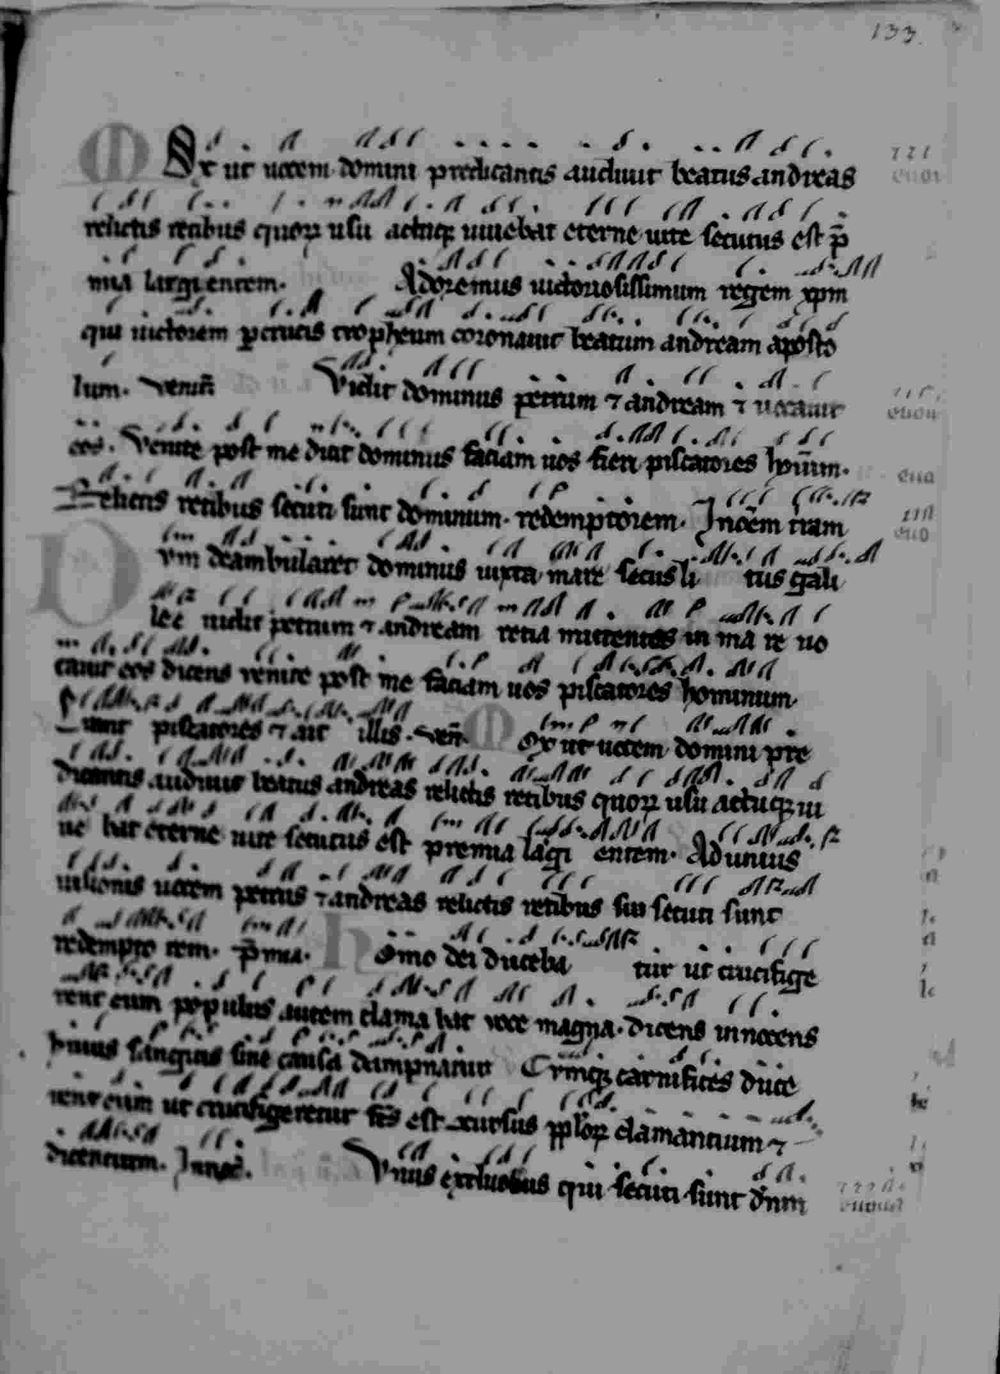 133.
Ox ut uocem domini predicantis audiuit beatus andreas
relictis retibus quoꝝ usu actuqꝫ uiuebat eterne uite secutus est p̄
mia largientem. Adoremus uictoriosissimum regem xpm
qui uictorem ꝑ crucis tropheum coronauit beatum andream aposto
lum. Venite Vidit dominus petrum ⁊ andream ⁊ uocauit
eos. Venite post me dicit dominus faciam uos fieri piscatores hominum.
Relictis retibus secuti sunt dominum redemptorem. In oem tram
Dum deambularet dominus iuxta mare secus li tus gali
lee uidit petrum ⁊ andream retia mittentes in ma re uo
cauit eos dicens venite post me faciam uos piscatores hominum.
piscatores ⁊ ait illis. Ven Mox ut uocem domini pre
dicantis audiuit beatus andreas relictis retibus quoꝝ usu actuqꝫ ui
ue bat eterne uite secutus est premia lagi entem. Ad unius
iussionis uocem petrus ⁊ andreas relictis retibus suis secuti sunt
redempto rem. p̄mia. homo dei duceba tur ut crucifige
rent eum populus autem clama bat uoce magna. dicens innocens
huius sanguis sine causa dampnatur Cumqꝫ carnifices duce
rent eum ut crucifigeretur est concursus pploꝝ clamantium ⁊
dicentium. Innoc. Vnus ex duobus qui secuti sunt dnm